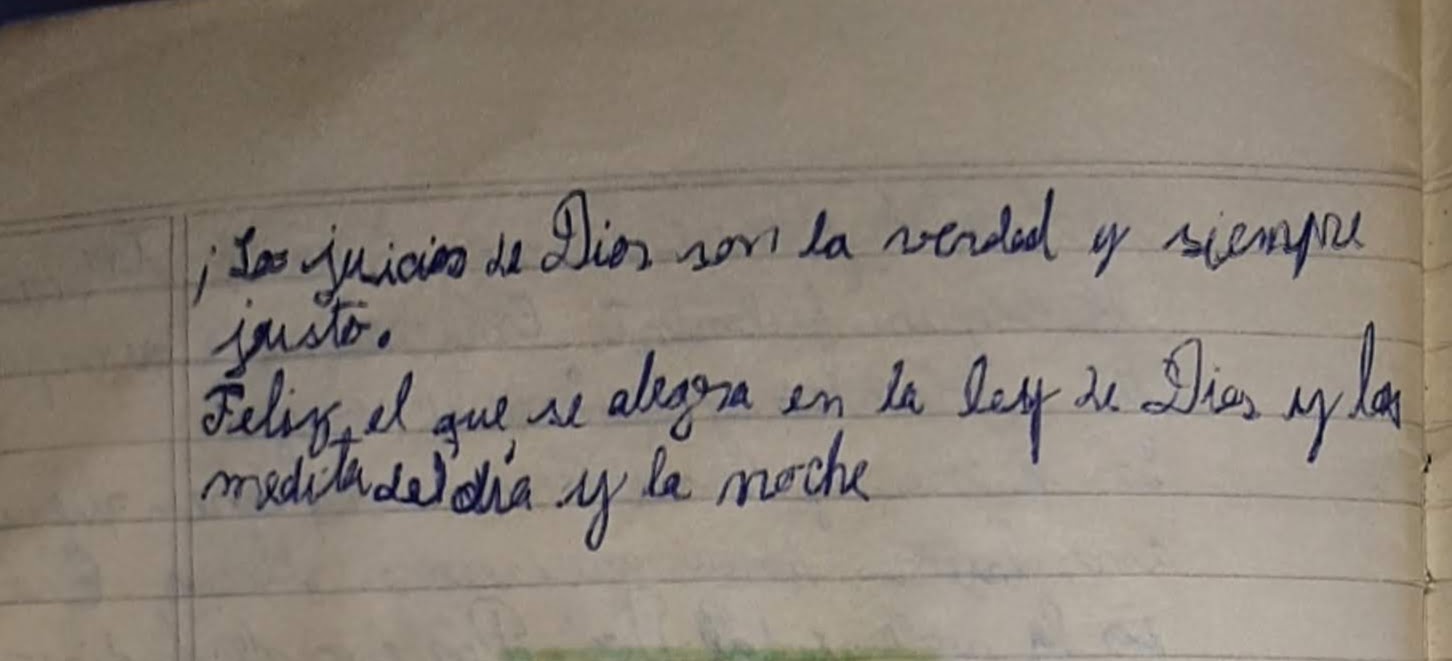 ¡Los juicios de Dios son la verdad y siempre
justo.
Feliz, el que se alegra en la ley de Dios y las
medita del día y la noche